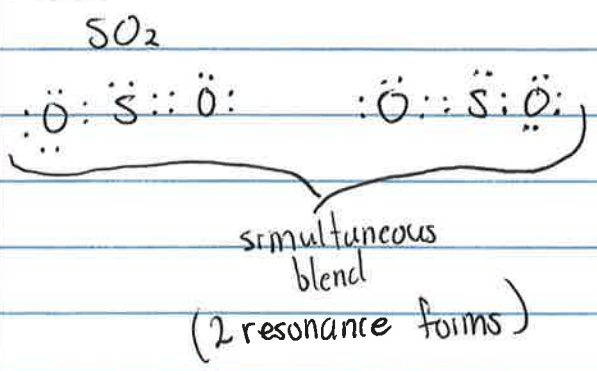 SO₂
:Ö:S̈::Ö: :Ö::S̈:Ö:
simultaneous
blend
(2 resonance forms)